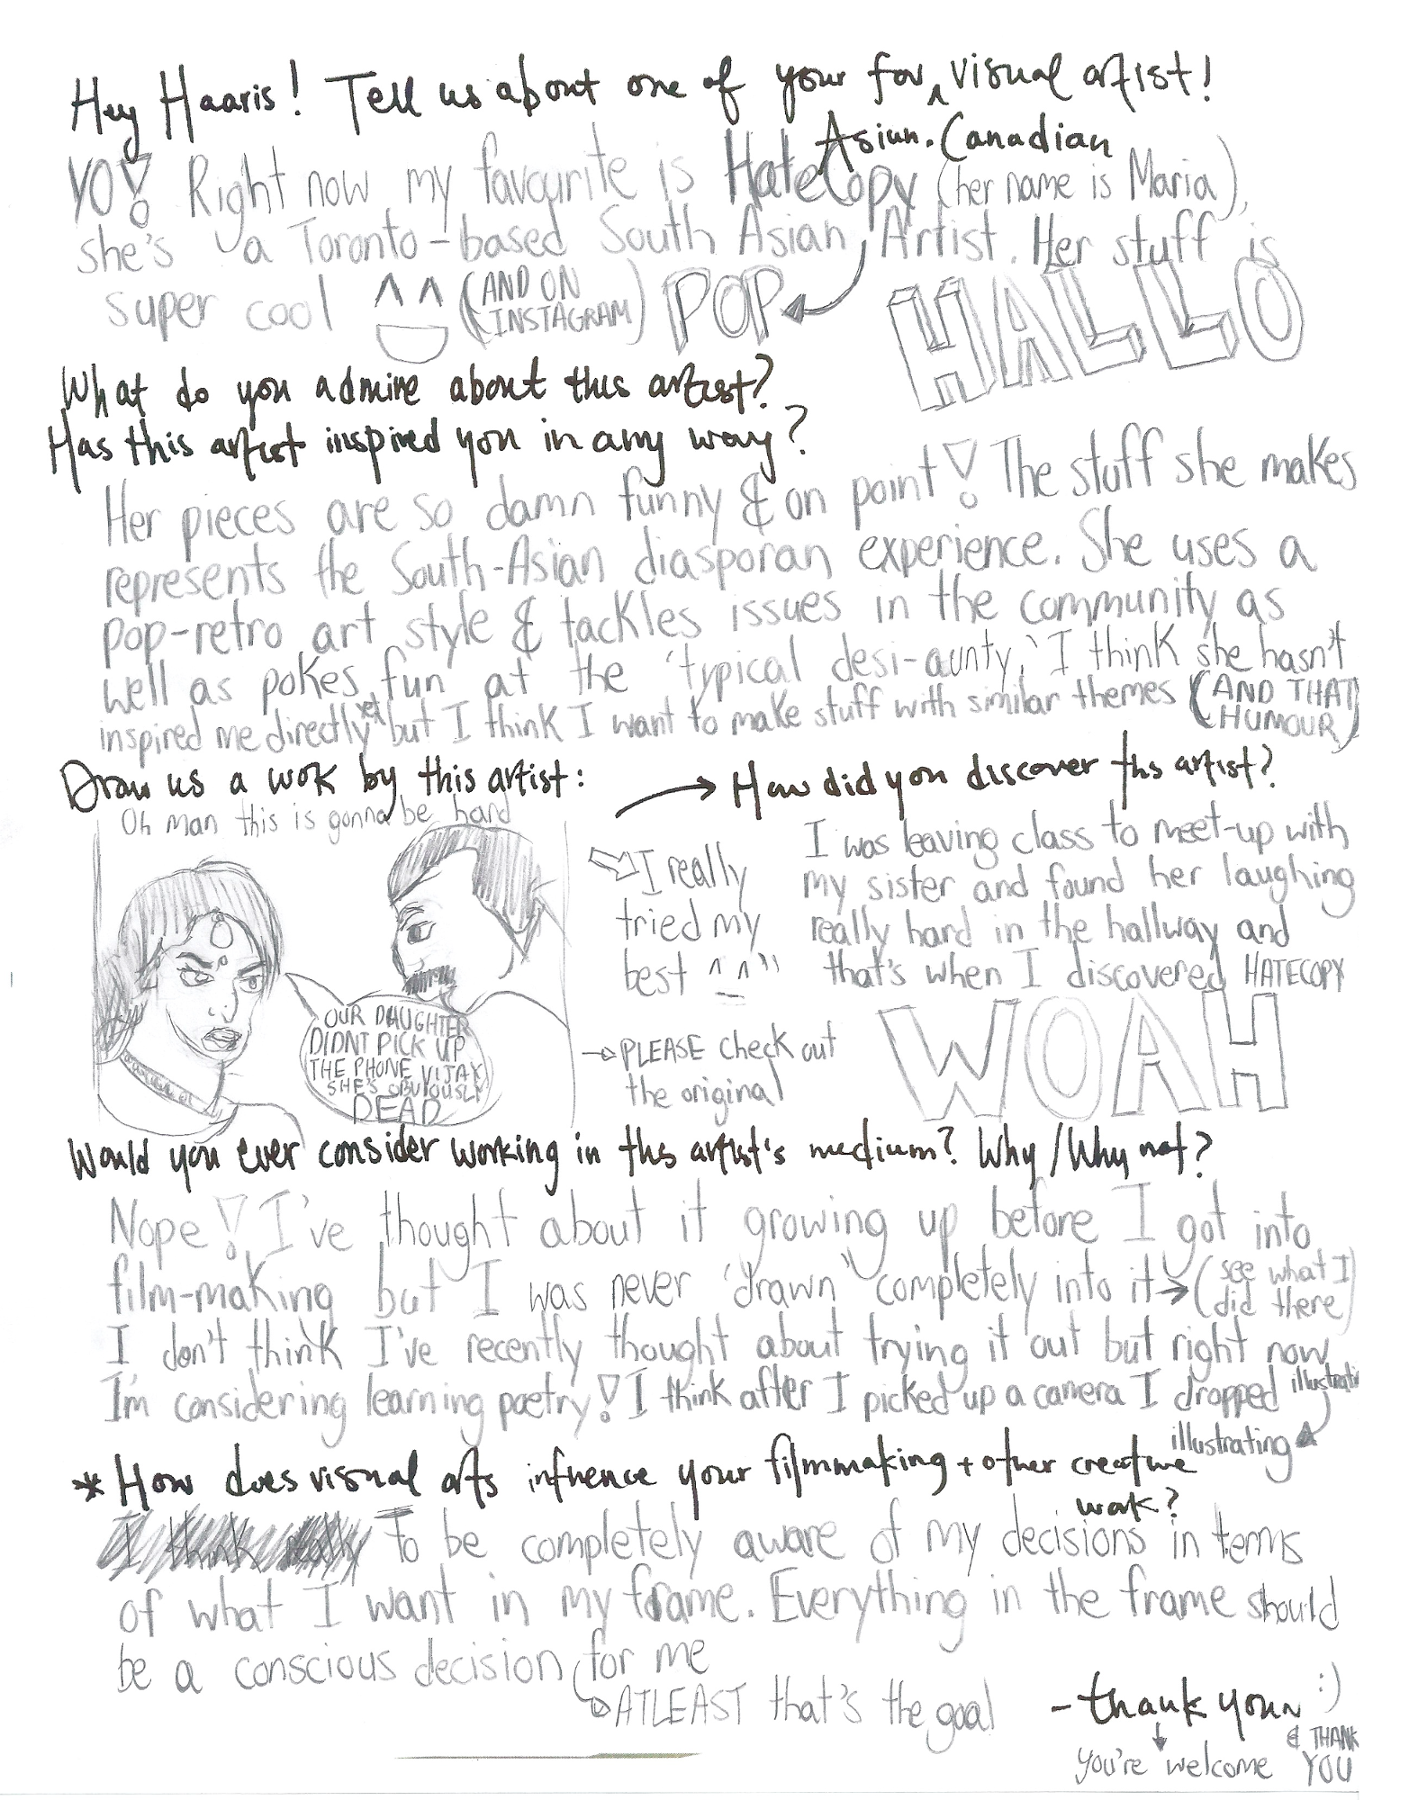 Hey Haaris! Tell us about one of your fav ^ visual artist!
Asian-Canadian
YO! Right now my favourite is HateCopy (her name is Maria),
she's a Toronto-based South Asian Artist. Her stuff is
super cool ^^ (AND ON INSTAGRAM) POP
HALLO
What do you admire about this artist?
Has this artist inspired you in any way?
Her pieces are so damn funny & on point! The stuff she makes
represents the South-Asian diasporan experience. She uses a
pop-retro art style & tackles issues in the community as
well as pokes fun at the 'typical desi-aunty,' I think she hasn't
inspired me directly yet but I think I want to make stuff with similar themes (AND THAT HUMOUR)
Draw us a work by this artist:
Oh man this is gonna be hard
OUR DAUGHTER
DIDNT PICK UP
THE PHONE VIJAY
SHE'S OBVIOUSLY
DEAD
I really
tried my
best ^_^"
PLEASE check out
the original
How did you discover this artist?
I was leaving class to meet-up with
my sister and found her laughing
really hard in the hallway and
that's when I discovered HATECOPY
WOAH
Would you ever consider working in this artist's medium? Why/Why not?
Nope! I've thought about it growing up before I got into
film-making but I was never 'drawn' completely into it → (see what I did there)
I don't think I've recently thought about trying it out but right now
I'm considering learning poetry! I think after I picked up a camera I dropped
illustrating
* How does visual arts influence your filmmaking + other creative
work?
I think To be completely aware of my decisions in terms
of what I want in my frame. Everything in the frame should
be a conscious decision for me
ATLEAST that's the goal
- thank youu :)
you're welcome & THANK YOU